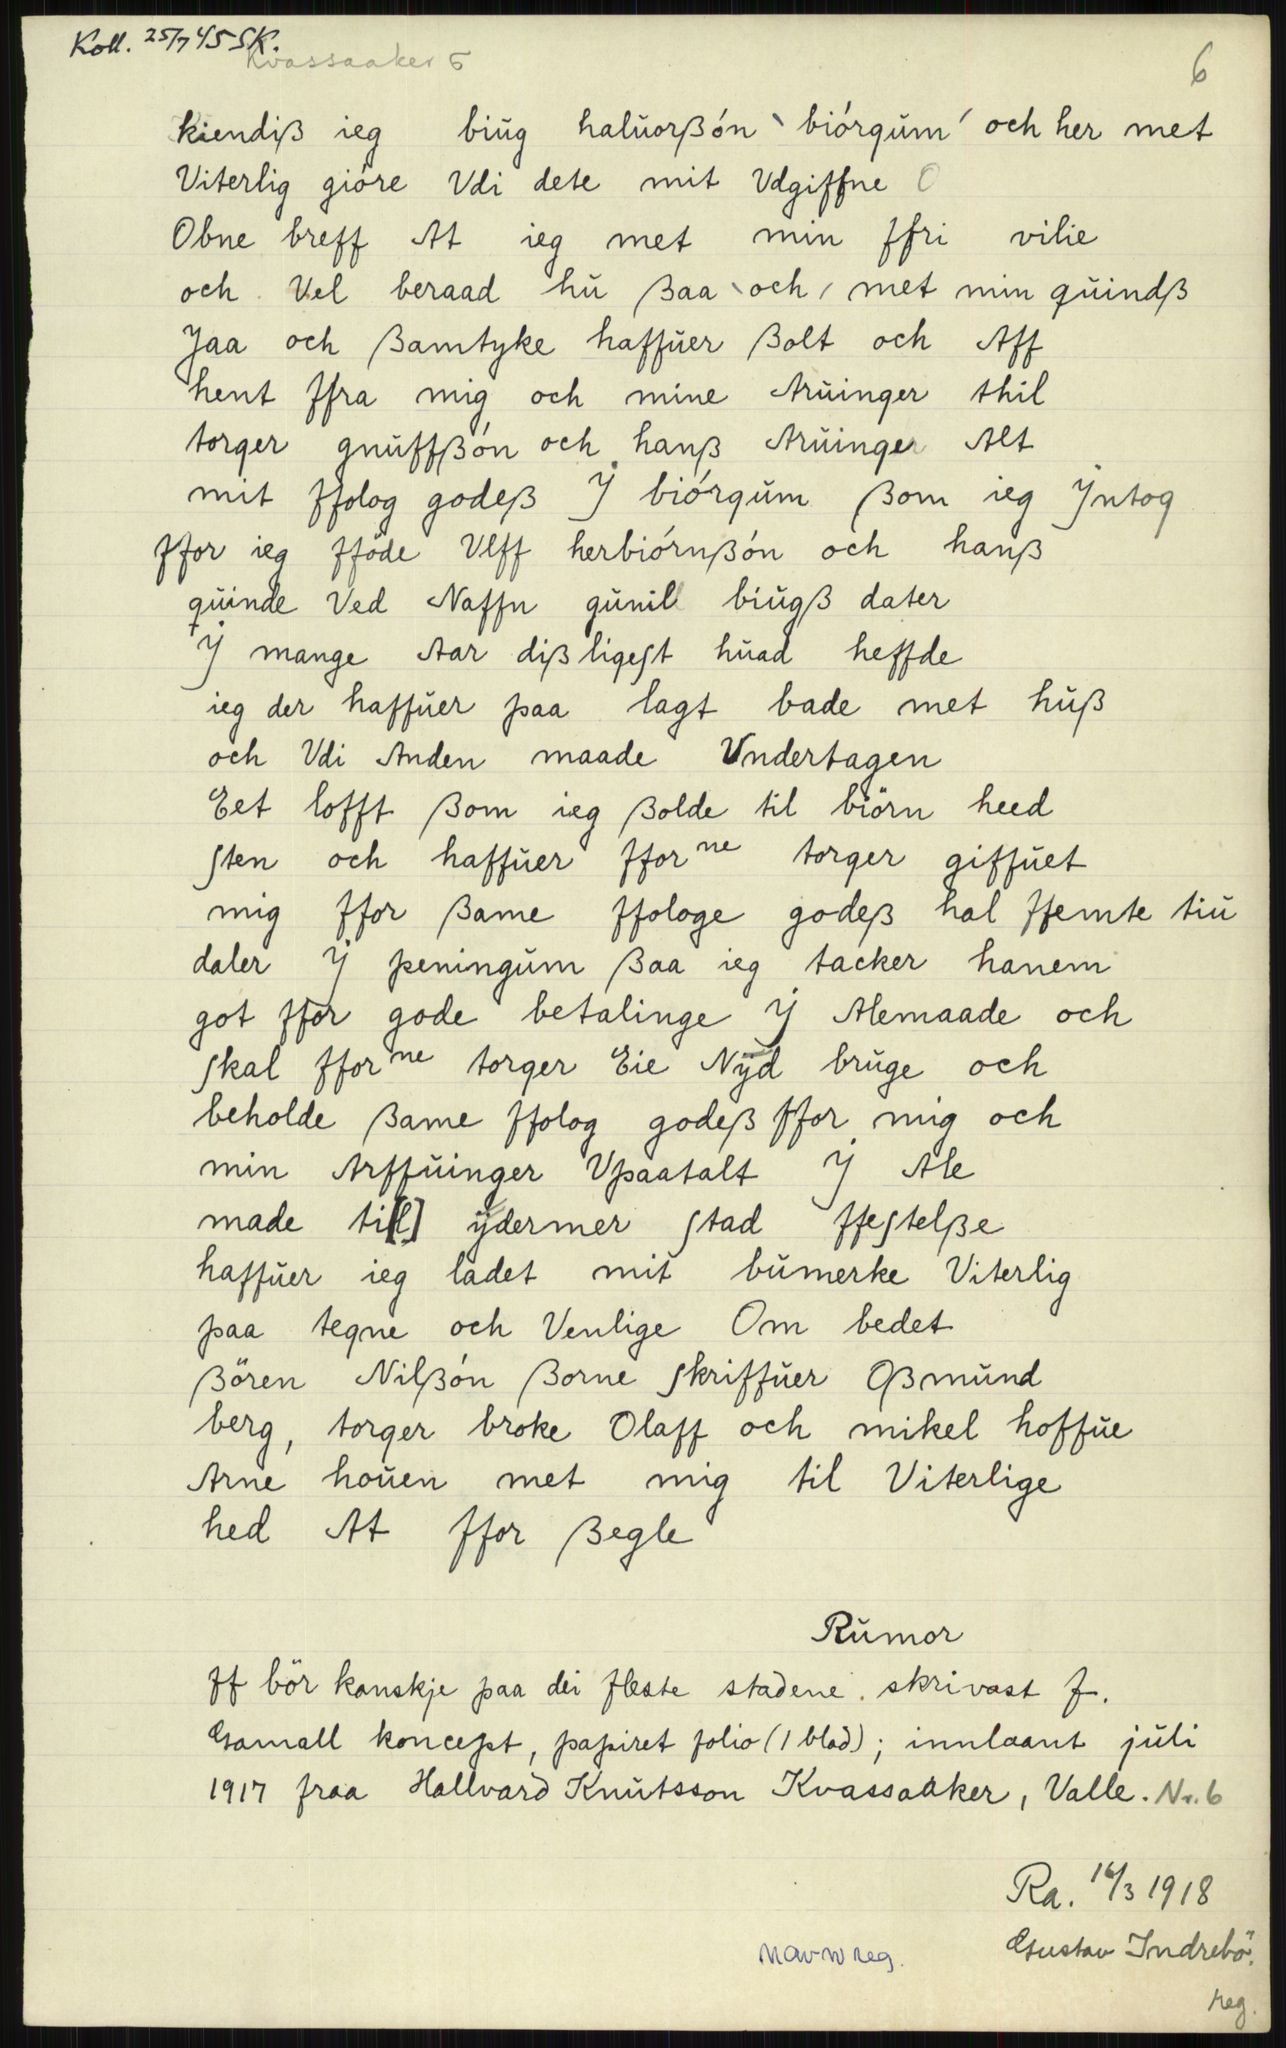 Koll. 25/7 45 SK.
Kvassaaker 5
6
kiendiß ieg biug haluorßón ‵biórgum′ och her met
Viterlig gióre Vdi dete mit Vdgiffne O
Obne breff At ieg met min ffri vilie
och Vel beraad hu ßaa ‵och′ met min quindß
Jaa och ßamtyke haffuer ßolt och Aff
hent ffra mig och mine Aruinger thil
torger gnuffßón och hanß Aruinger Alt
mit ffolog godeß Ý biórgum ßom ieg Ýntog
ffor ieg fföde Vlff herbiórnßón och hanß
quinde Ved Naffn gunil biugß dater
Ý mange Aar dißligest huad heffde
ieg der haffuer paa lagt bade met huß
och Vdi Anden maade Vndertagen
Eet lofft ßom ieg ßolde til biörn heed
sten och haffuer ffor ne torger giffuet
mig ffor ßame ffologe godeß hal ffemte tiu
daler Ý peningum ßaa ieg tacker hanem
got ffor gode betalinge Ý Alemaade och
skal ffor ne torger Eie Nÿd bruge och
beholde ßame ffolog godeß ffor mig och
min Arffuinger Vpaatalt Ý Ale
made ti[l] ÿdermer stad ffestelße
haffuer ieg ladet mit bumerke Viterlig
paa tegne och Venlige Om bedet
ßören Nilßón ßorne skriffuer Oßmund
berg, torger broke Olaff och mikel hoffue
Arne houen met mig til Viterlige
hed At ffor ßegle
Rumor
ff bör kanskje paa dei fleste stadene skrivast f.
Gamall koncept, papiret folio (1 blad); innlaant juli
1917 fraa Hallvard Knutsson Kvassaaker, Valle. Nr. 6
Ra. 16/3 1918
Gustav Indrebö.
navnreg.
reg.